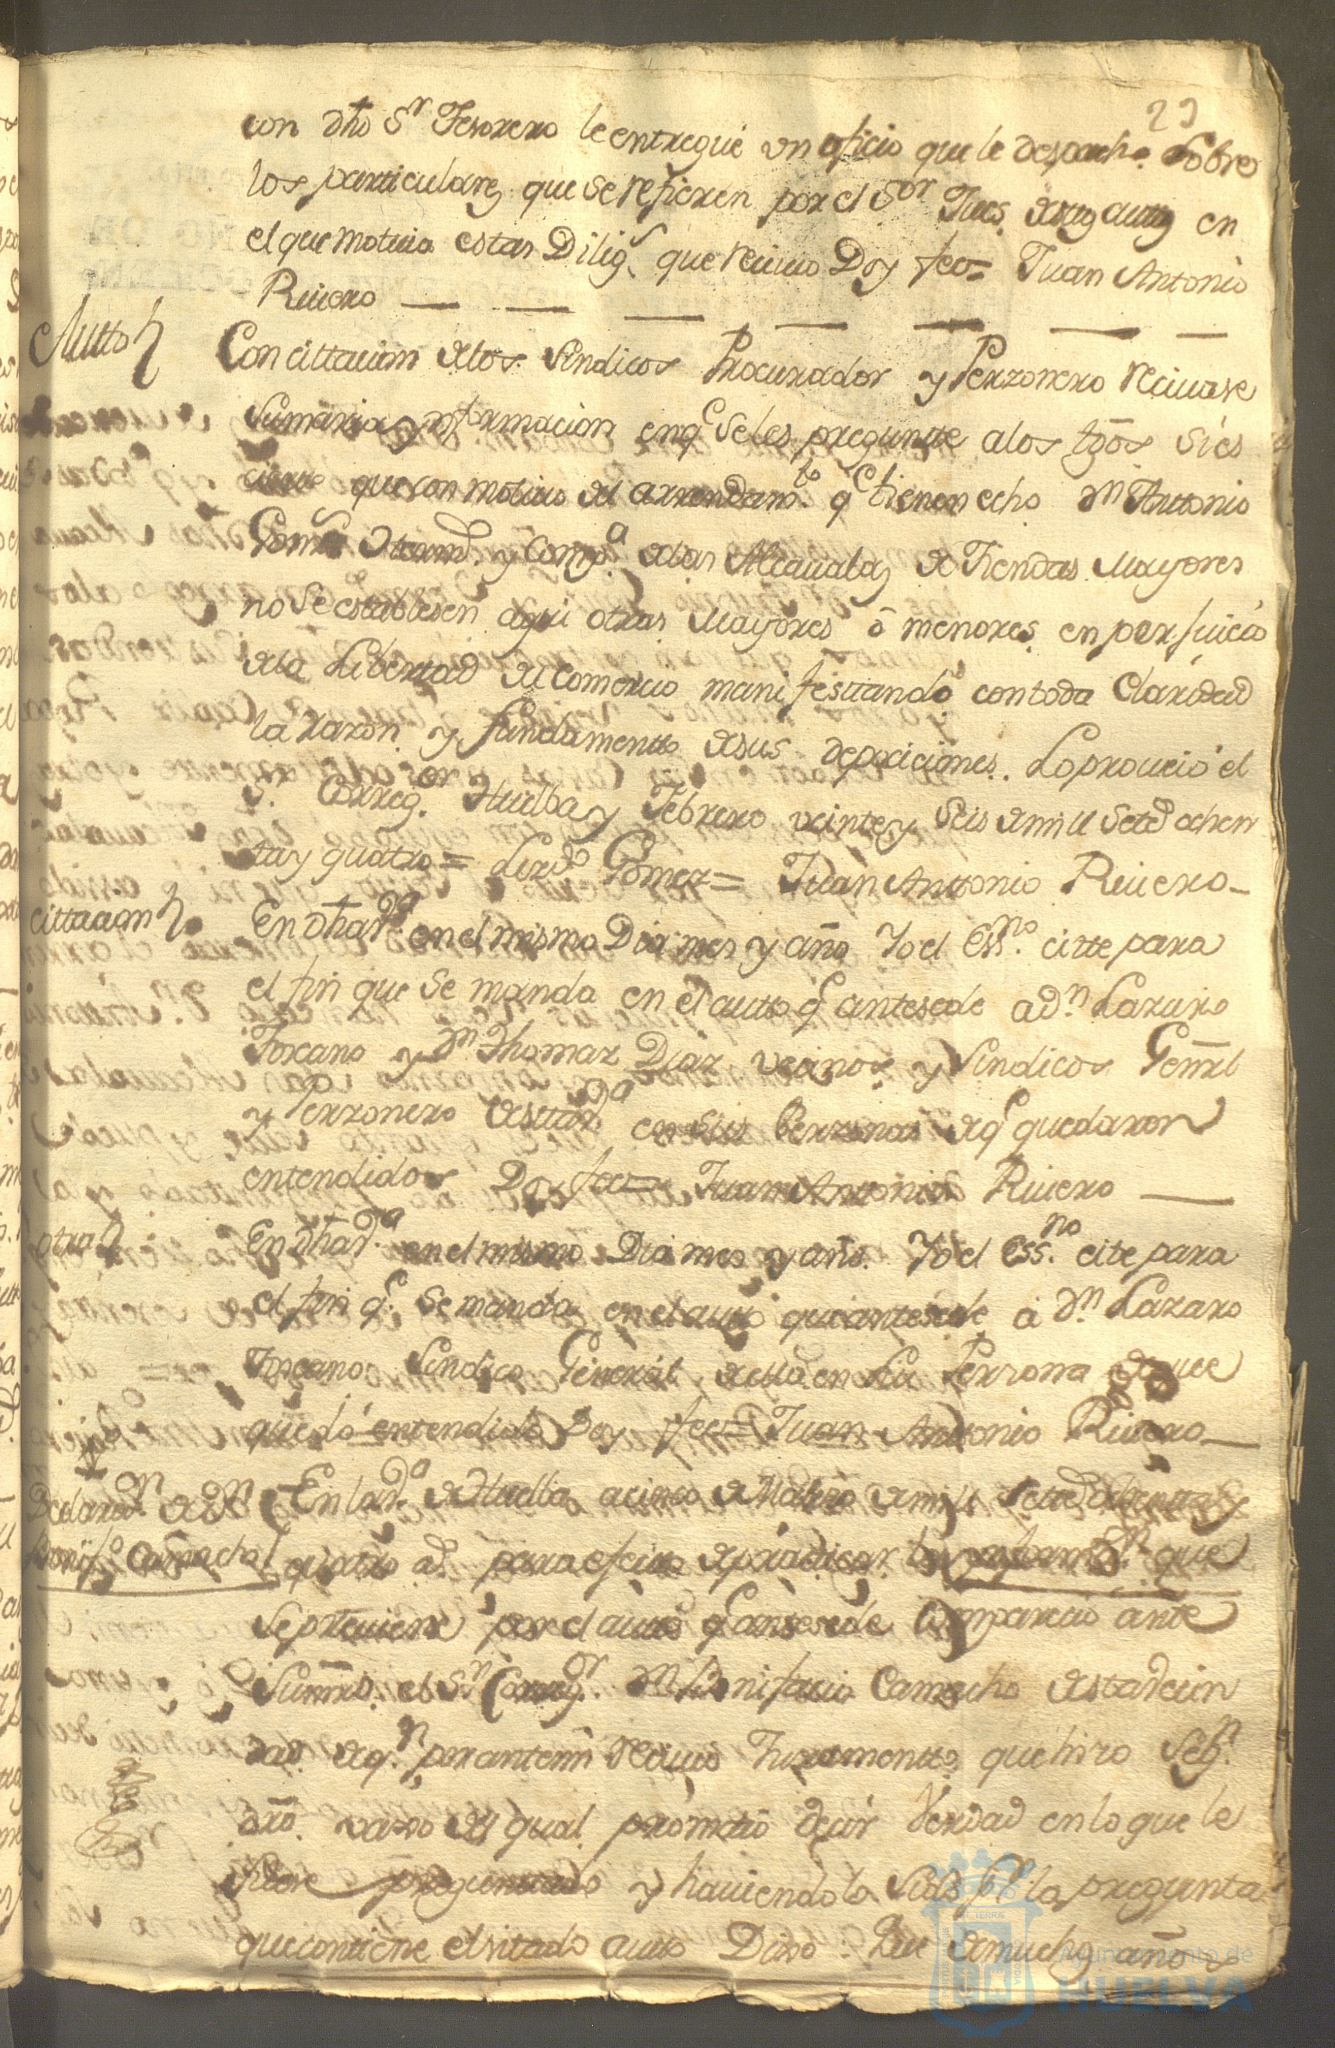 29
con dho Sr Tesorero le entregue un oficio que le despacho. Sobre
los particulares que se refieren por el Sor Jues destos auttos en
el que motiua estas Dilig.s que reciuio Doy fee= Juan Antonio
Riuero
Autto
Con cittacion a los Sindicos Procurador y Perzonero Reciuase
Sumaria ynformacion en q.e se les preguntte a los tgõs si es
cierto que con motiuo del arrendam.to q.e tienen echo Dn Anttonio
Gomez y Comp.a de las Alcaualas de Tiendas Mayores
no se establesen aqui otras Mayores ô menores en perjuicio
de la Libertad del Comercio manifesttando con toda Claridad
la razon y fundamentto de sus depociciones. Lo proueió el
S.r Correg.or Huelba y Febrero veinte y Seis de mill Setts ochen
ta y quatro= Lizdo Gomez= Juan Antonio Riuero
cittacion
En dha V.a en el mismo Dia mes y año Yo el Ess.no citte para
el fin que se manda en el autto q antesede a dn Lazaro
Toscano y Dn Thomaz Diaz vecinos y Sindicos Genrl
y Perzonero de esta V.a en sus Perzonas de q.e quedaron
entendidos Doy fee= Juan Antonio Riuero
otra
En dha V.a en el mismo Dia mes y año. Yo el Ess.no cite para
el fin q.e se manda en el autto que antesede á Dn Lazaro
Toscano Sindico General de ella en su Perzona de que
quedó entendido Doy fee= Juan Antonio Riuero
Declarazn de Dn
Bonifo Camacho
En la V.a de Huelba a cinco de Marzo de mill Setts ochentta y
quatro as. para efecto de practicar la ynformn que
se preuiene por el autto q antesede Comparecio ante
Su mrd. el Sr Corregr. Dn Bonifacio Camacho de esta vecin
dad de q.n por ante mi Reciuio Juramentto que hizo Segn
dro. vaxo del qual prometió decir Verdad en lo que le
fuere preguntado y hauiendolo Sido pr la pregunta
que contiene el citado autto Dixo: Que de muchos años
Ayuntamiento de
HUELVA